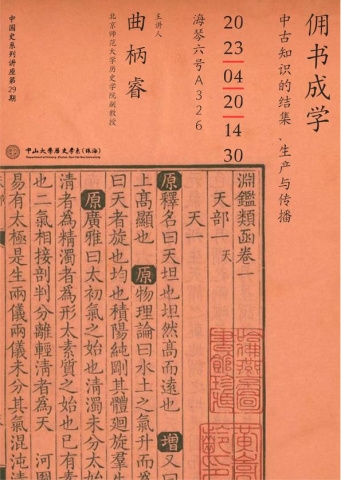 佣书成学
中古知识的结集、生产与传播
20
23
04
20
14
30
海琴六号A326
主讲人
曲柄睿
北京师范大学历史学院副教授
中国史系列讲座第29期
中山大学历史学系(珠海)
淵鑑類函卷一
天部一
天一
天
原釋名曰天坦也坦然高而遠也 增又曰
上高顯也 原物理論曰水土之氣升而為
曰天者旋也均也積陽純剛其體廻旋羣生
原廣雅曰太初氣之始也清濁未分太始
清者為精濁者為形太素質之始也已有素
也二氣相接剖判分離輕清者為天 河圖
易有太極是生兩儀兩儀未分其氣混沌清